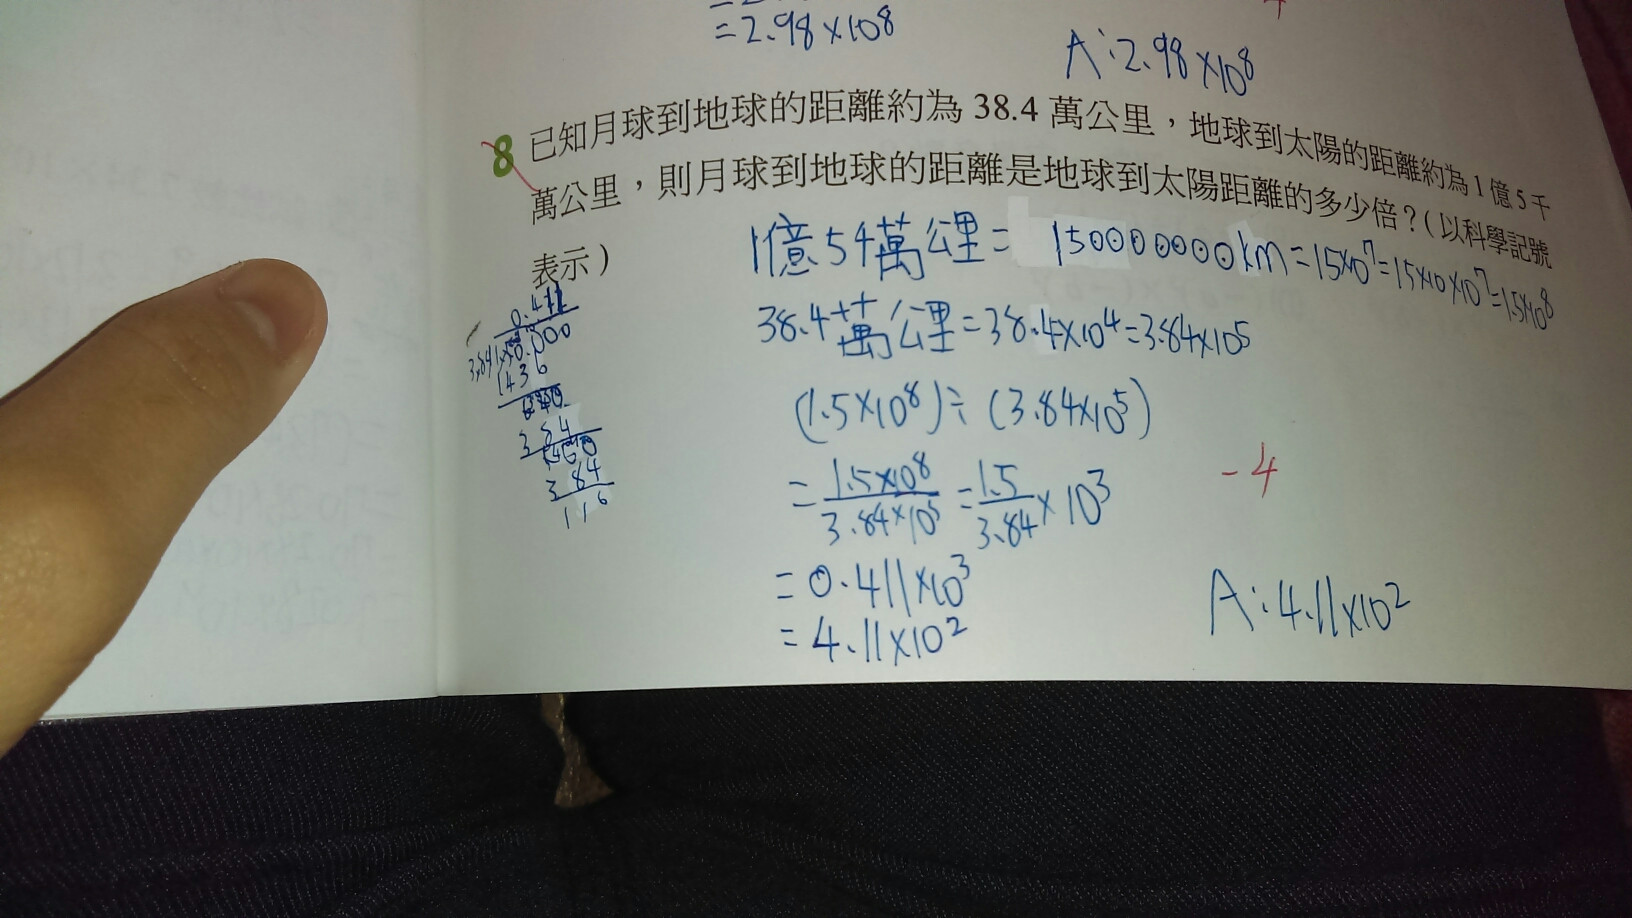 =2.98×10⁸
A:2.98×10⁸
8 已知月球到地球的距離約為 38.4 萬公里，地球到太陽的距離約為 1 億 5 千
萬公里，則月球到地球的距離是地球到太陽距離的多少倍？(以科學記號
表示)
1億5千萬公里= 150000000km=15×10⁷=1.5×10×10⁷=1.5×10⁸
38.4萬公里=38.4×10⁴=3.84×10⁵
(1.5×10⁸)÷(3.84×10⁵)
=1.5×10⁸/3.84×10⁵=1.5/3.84×10³
-4
=0.411×10³
=4.11×10²
A:4.11×10²
0.411
384
384
116